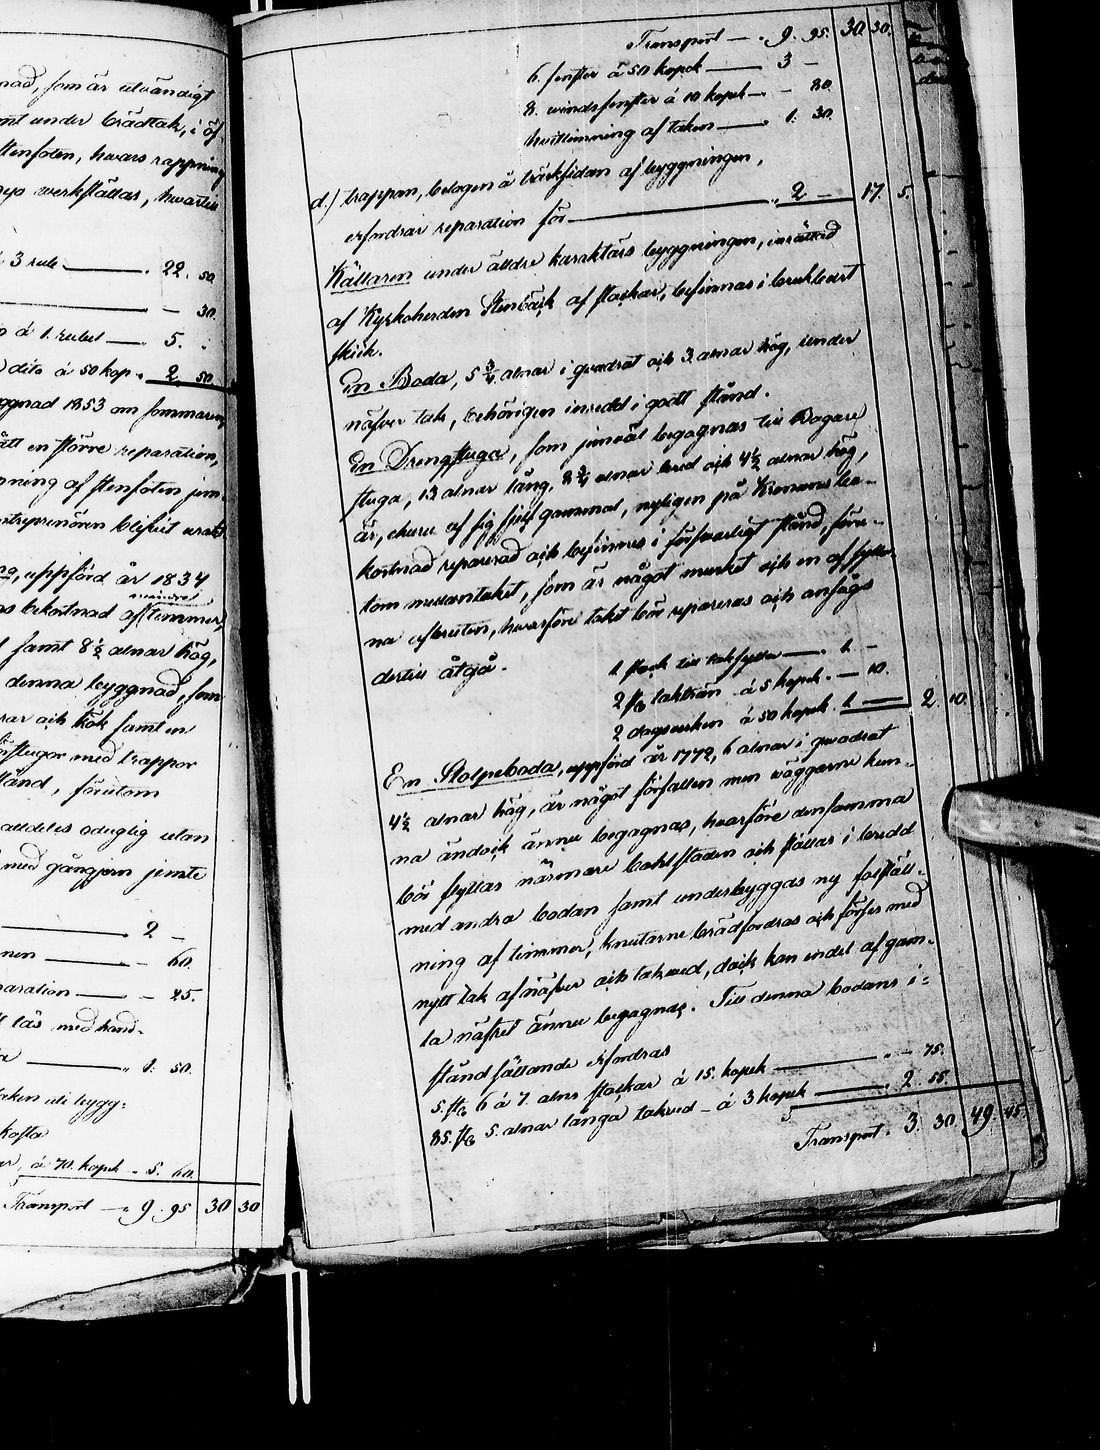 nad, som är utvändigt
amt under brädtak, i öf-
stenfoten, hvars rappning
nya werkställas, hwartill
3 rub 22. 50
— 30.
à 1. rubel 5.
dito à 50 kop. 2 50
byggnad 1853 om sommaren
ått en större reparation,
ning af stenfoten jem-
ntreprenören blifvit
uppförd år 1834
mindre
bekostnad af timmer,
samt 8½ alnar hög,
denna byggnad, som
rar och kök samt en
stugor med trappor
stånd, förutom
alldeles oduglig utan
med gångjern jemte
2 —
nen — 60.
paration — 25.
lås med hand-
1. 50.
taken uti bygg-
kosta
à 70. kopek 5. 60.
Transport 9. 95 30 30
Transport 9. 95. 30. 30.
6. fenster à 50 kopek 3 —
8. windsfenster à 10 kopek — 80.
hvitlimning af taken 1. 30.
d.) trappan, belägen å trädsidan af byggningen,
erfordrar reparation för 2 — 17. 5.
Källaren under äldre karaktärs byggningen, inrättad
af Kyrkoherden Stenbäck af stockar, befinnes i brukbart
skick.
En Boda, 5 ¾ alnar i quadrat och 3. alnar hög, under
näfver tak, behörigen inredd i godt stånd.
En Drengstuga, som jemväl begagnas till Bagare
stuga, 13 alnar lång, 8 ¾ alnar bred och 4½ alnar hög,
är, ehuru af sig sjelf gammal, nyligen på Kronans be-
kostnad reparerad och befinnes i försvarligt stånd, föru-
tom mellantaket, som är något murket och en af fyllor-
na afbruten, hvarföre taket bör repareras och anses
dertill åtgå.
1 stock till takfylla 1. —
2 st takträn à 5 kopek — 10.
2 dagsverken à 50 kopek. 1 — 2. 10.
En Stolpeboda, uppförd år 1772, 6 alnar i quadrat
4½ alnar hög, är något förfallen men väggarne kun-
na ändock ännu begagnas, hvarföre densamma
bör flyttas närmare bohlstaden och ställas i bredd
med andra bodan samt underbyggas ny fotställ-
ning af timmer, knutarne brädfodras och förses med
nytt tak af näfver och takved, dock kan en del af gam-
la näfret ännu begagnas. Till denna bodans i-
ståndsättande erfordras
5. st 6 à 7. alns stockar à 15. kopek — 75.
85. st 5. alnar långa takved — à 3 kopek 2. 55.
Transport. 3. 30. 49. 45.